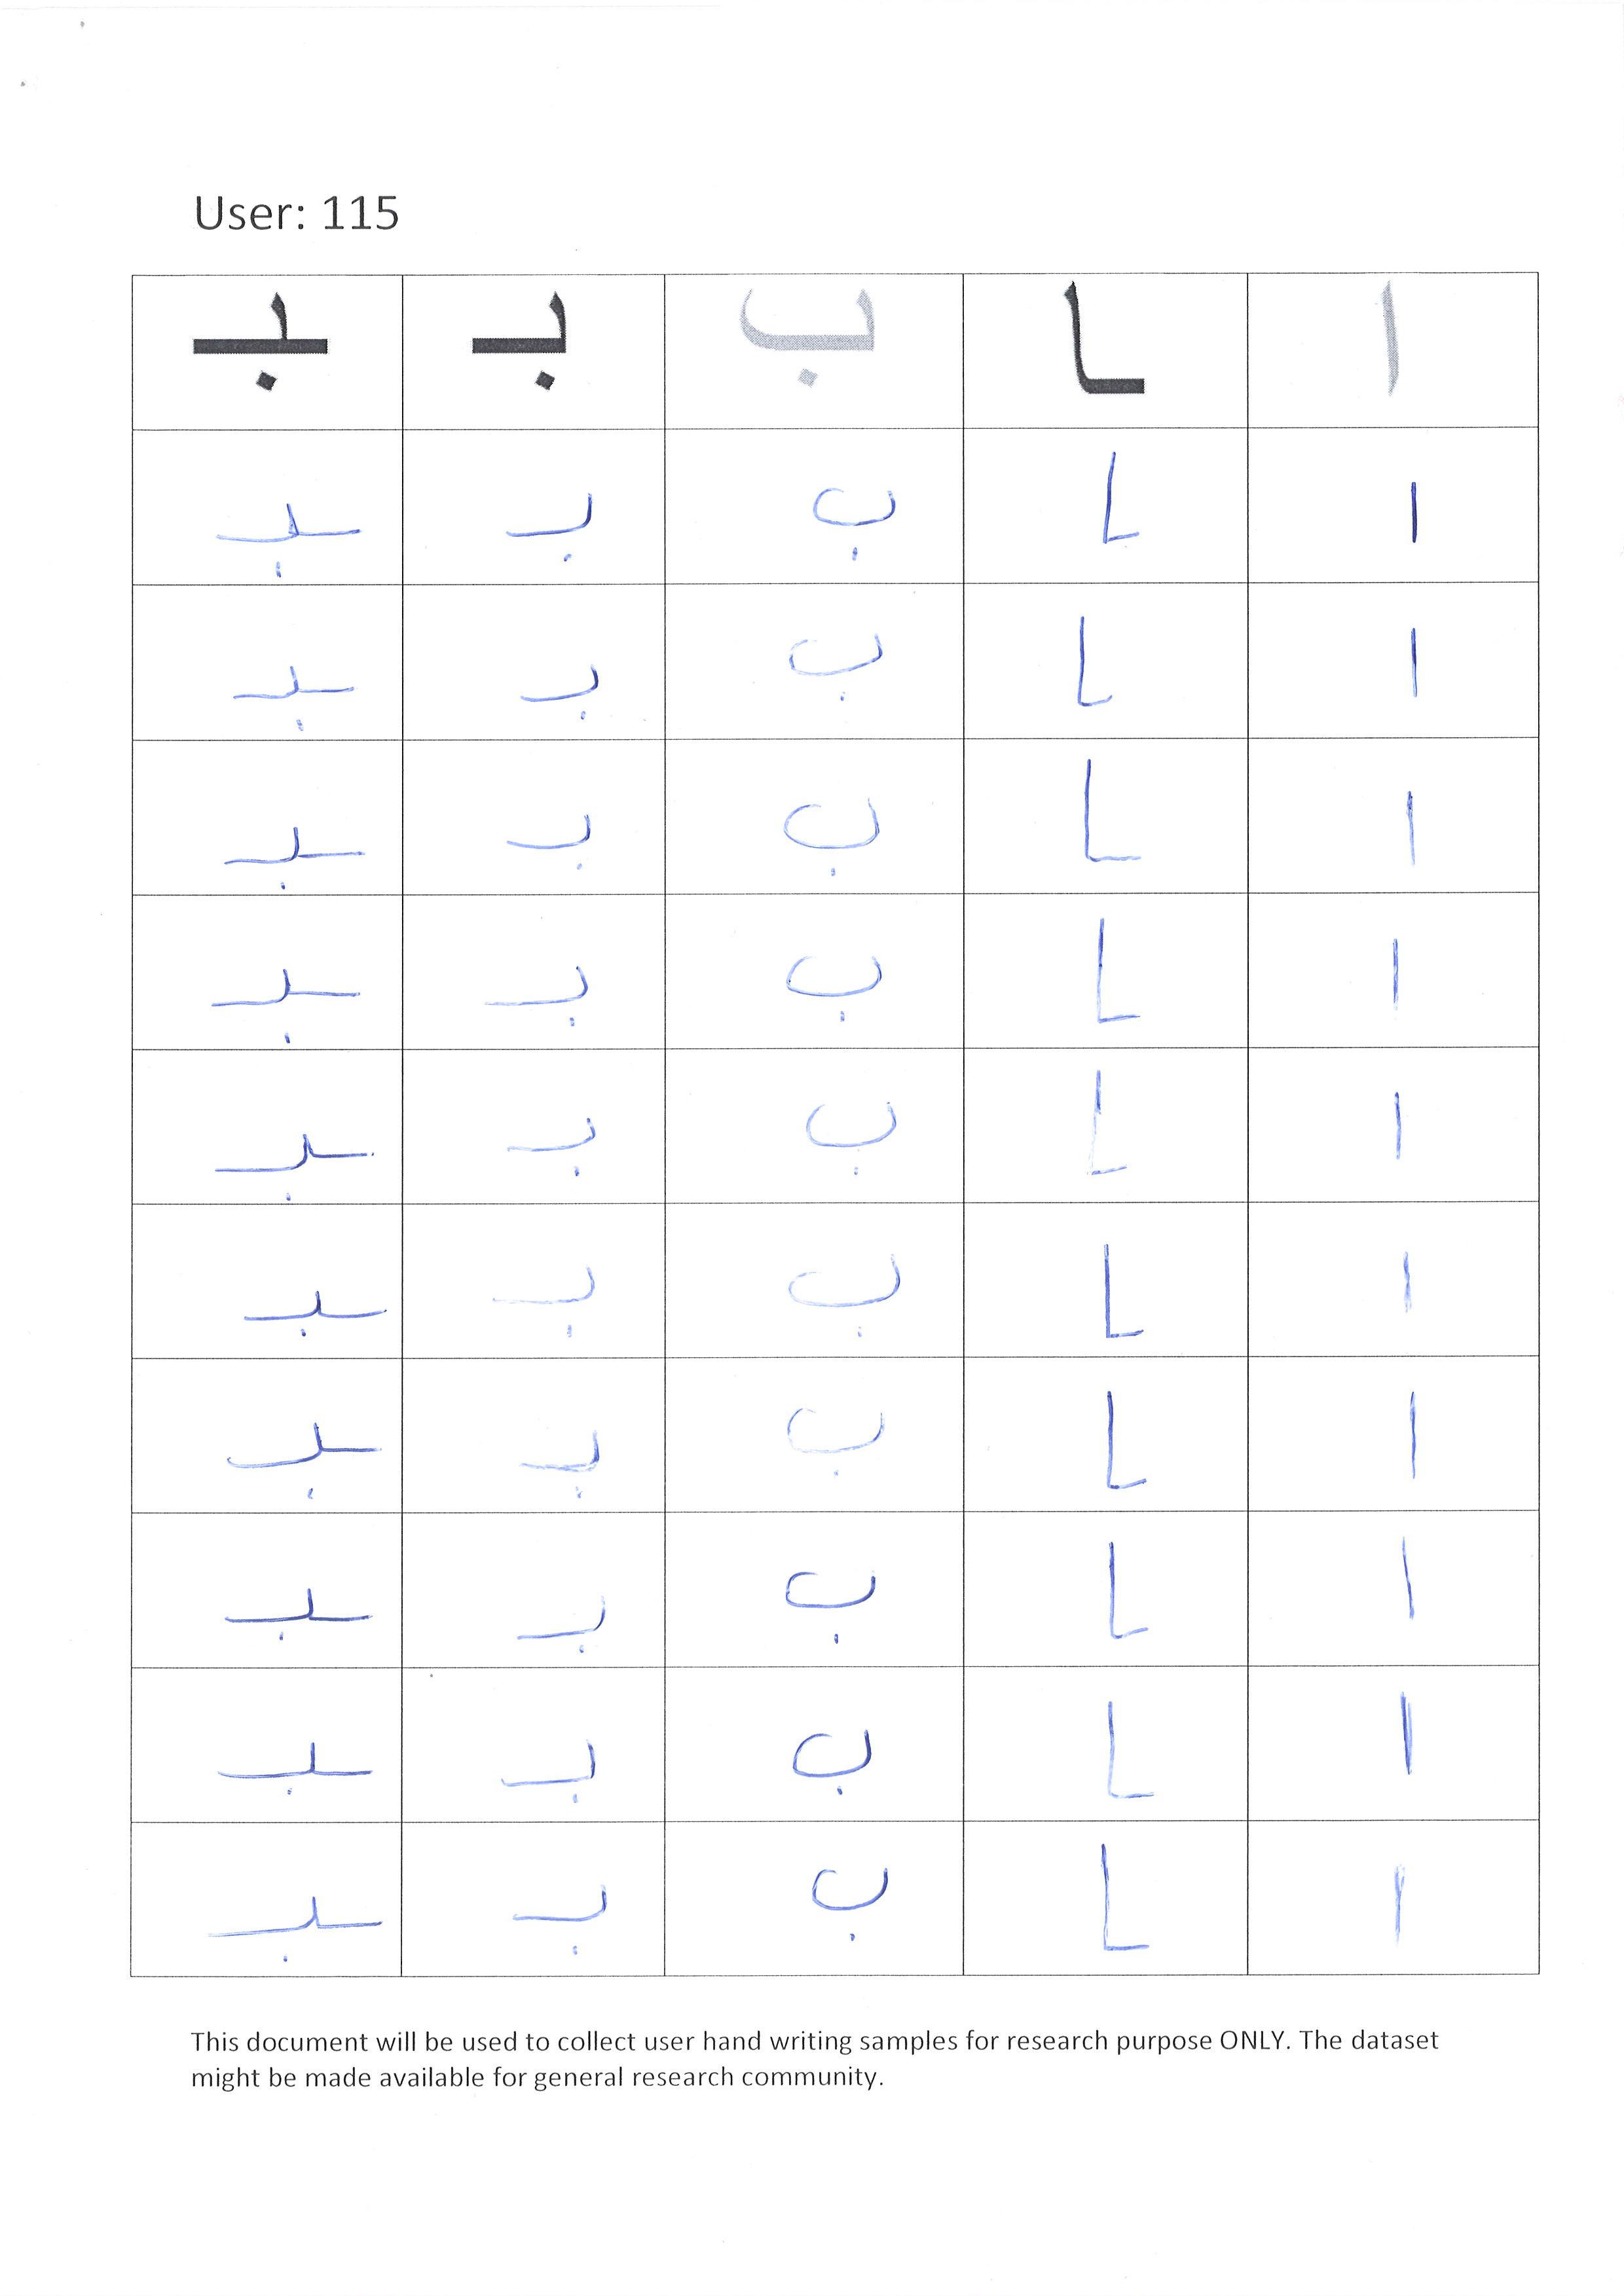 User: 115
ا ـا ب بـ ـبـ
ا ـا ب بـ ـبـ
ا ـا ب بـ ـبـ
ا ـا ب بـ ـبـ
ا ـا ب بـ ـبـ
ا ـا ب بـ ـبـ
ا ـا ب بـ ـبـ
ا ـا ب بـ ـبـ
ا ـا ب بـ ـبـ
ا ـا ب بـ ـبـ
ا ـا ب بـ ـبـ
This document will be used to collect user hand writing samples for research purpose ONLY. The dataset
might be made available for general research community.